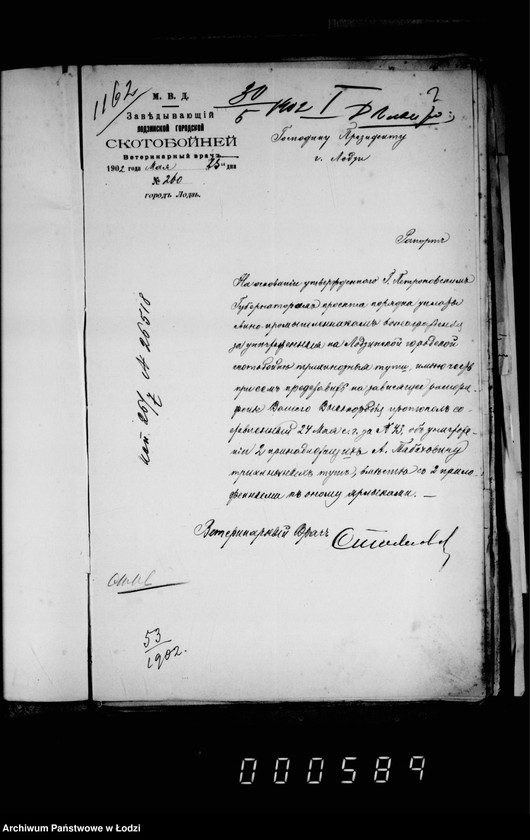 1162
М. В. Д.
Завѣдывающій
ЛОДЗИНСКОЙ ГОРОДСКОЙ
СКОТОБОЙНЕЙ
Ветеринарный врачъ
1902 года Мая 25 дня
№ 260
городъ Лодзь.
30/5 1902 I
?
Господину Президенту
г. Лодзи
Рапортъ
На основаніи утвержденного Г. Петроковскимъ
Губернаторомъ проекта порядка уплаты
промышленникамъ вознагражденія
за уничтоженныя на Лодзинской городской
скотобойне трихинозныя туши, имѣю честь
при семъ представить на зависящее распоря-
женіе Вашего Высокородія протоколъ со-
ставленный 24 Мая с.г. за № 43, объ уничтоже-
ніи 2 принадлежащихъ А.
трихинныхъ тушъ, вмѣстѣ съ 2 прило-
женными къ оному ярлыками. —
Ветеринарный Врачъ
№ 26518
53
1902.
000589
Archiwum Państwowe w Łodzi